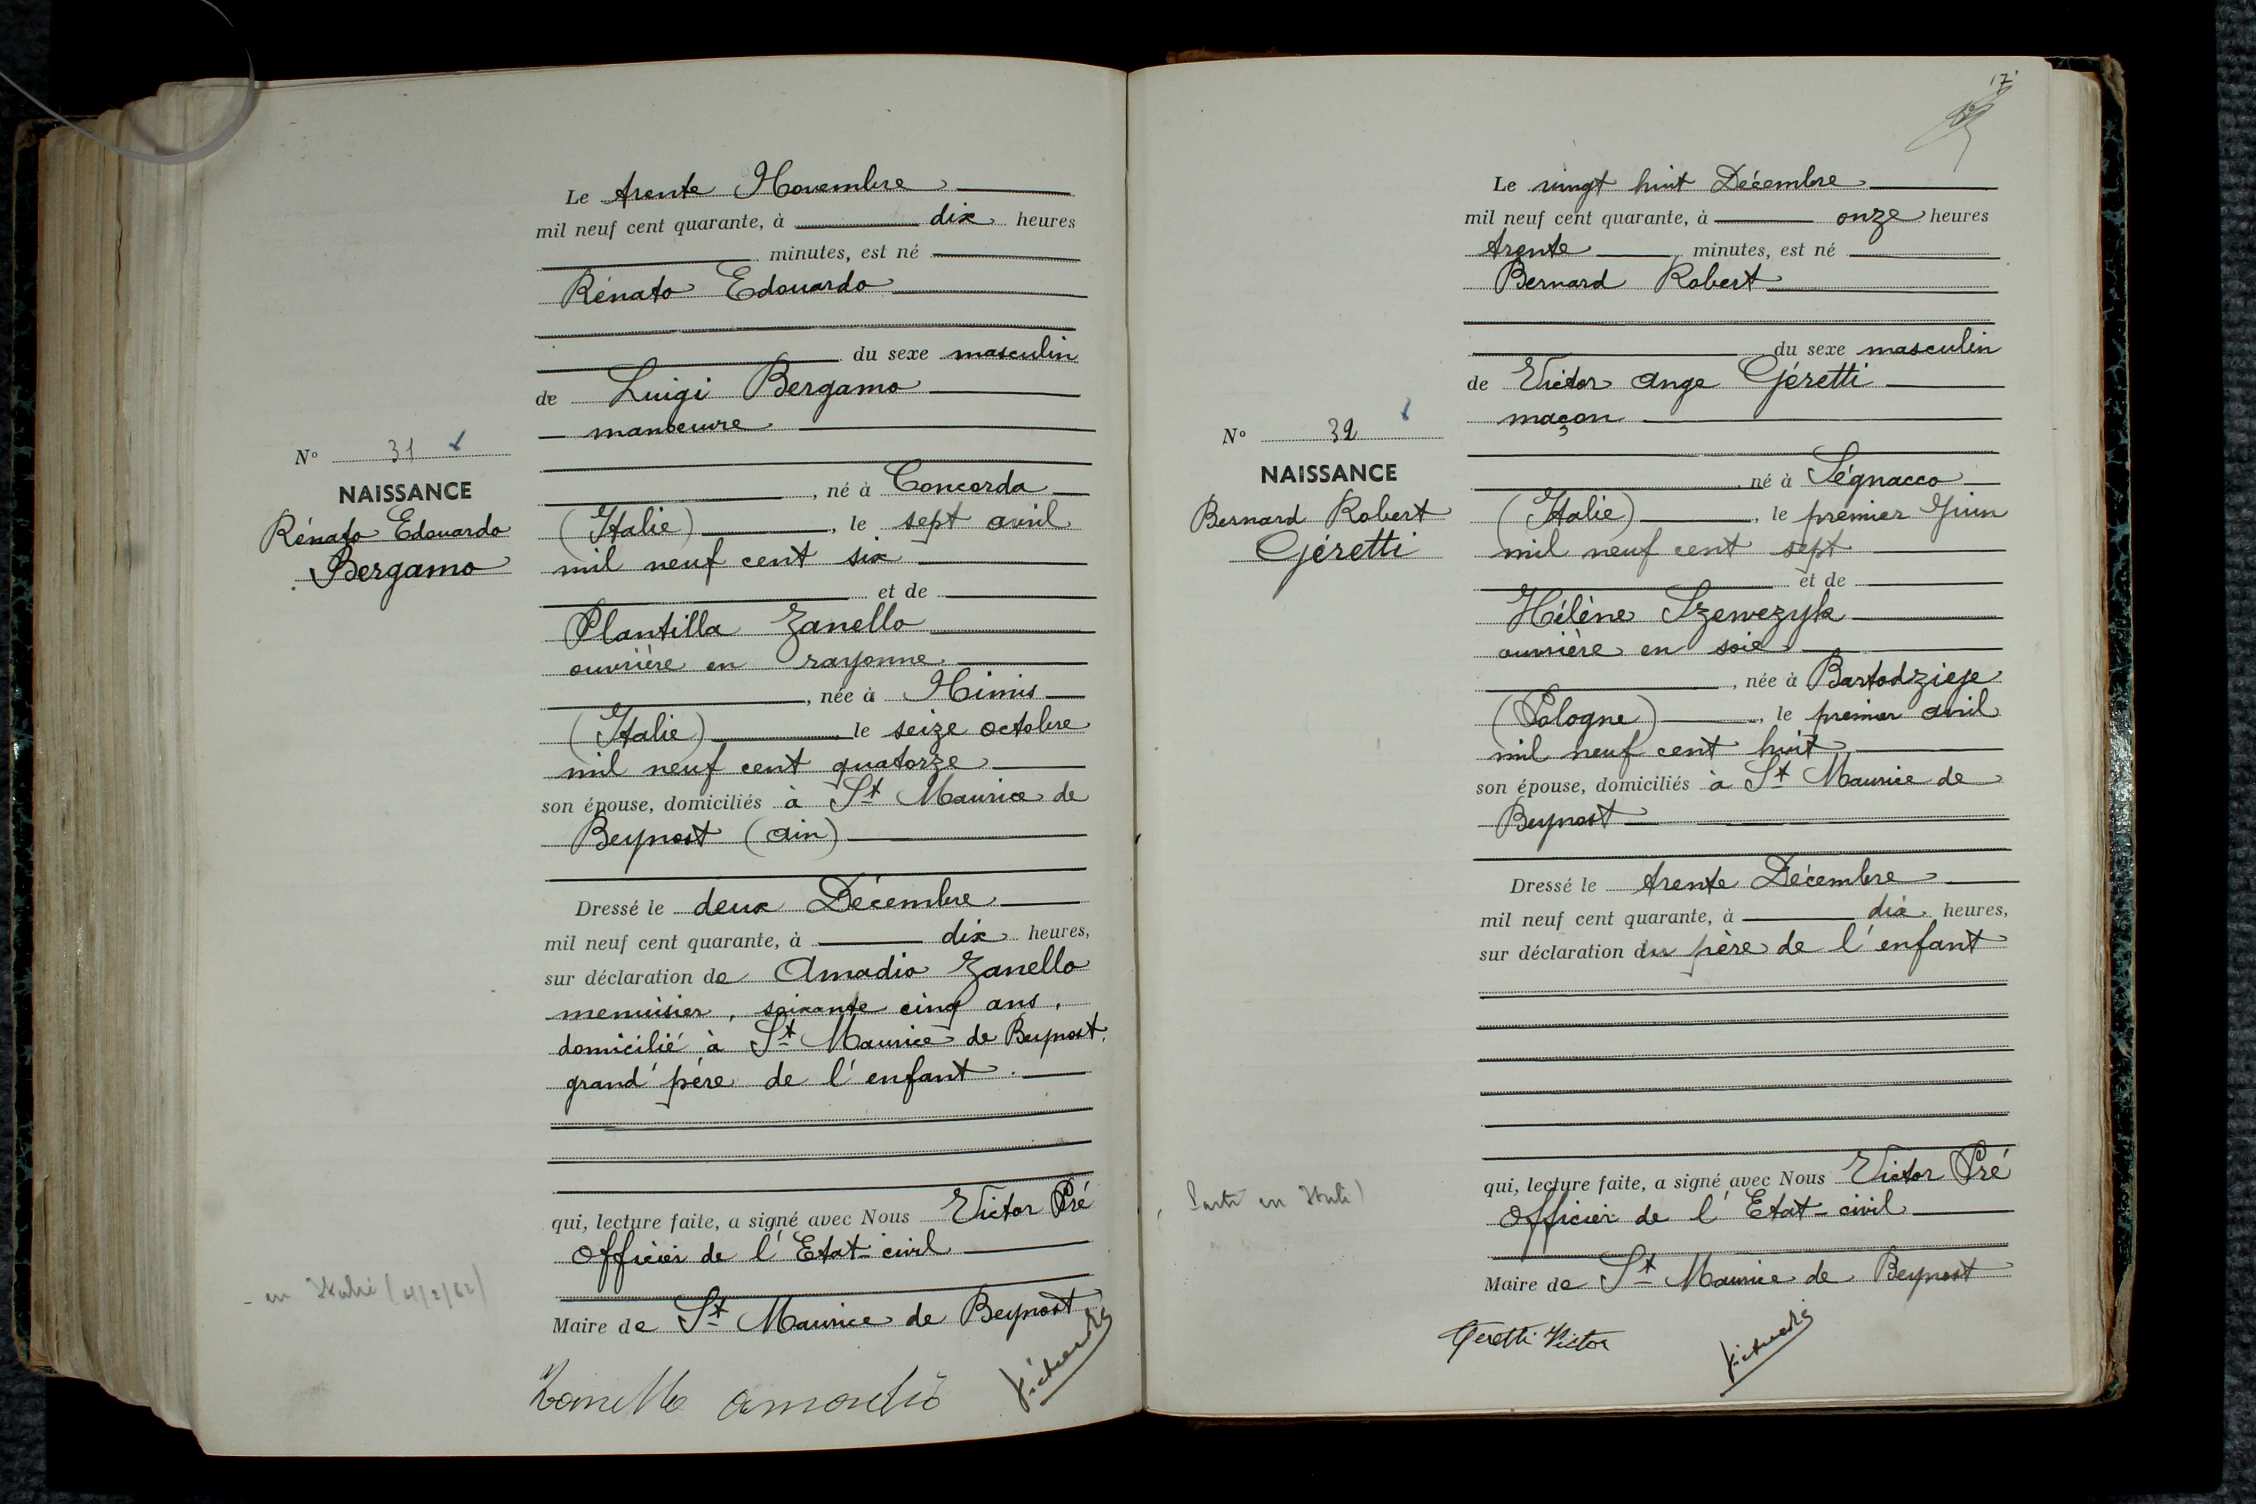 Le trente Novembre
mil neuf cent quarante, à dix heures
minutes, est né
Rénato Edouardo
du sexe masculin
de Luigi Bergamo
manoeuvre
N° 31
NAISSANCE
Rénato Edouardo
Bergamo
, né à Concorda
(Italie), le sept avril
mil neuf cent six
et de
Plantilla Zanello
ouvrière en rayonne
, née à Nimis
(Italie) le seize octobre
mil neuf cent quatorze
son épouse, domiciliés à St Maurice de
Beynost (Ain)
Dressé le deux Décembre
mil neuf cent quarante, à dix heures,
sur déclaration de Amadio Zanello
menuisier, soixante cinq ans,
domicilié à St Maurice de Beynost,
grand'père de l'enfant.
qui, lecture faite, a signé avec Nous Victor Pré
Officier de l'Etat-civil
- en Italie (4/2/62)
Maire de St Maurice de Beynost
Zanello Amadio
17
Le vingt huit Décembre
mil neuf cent quarante, à onze heures
trente minutes, est né
Bernard Robert
du sexe masculin
de Victor Ange Géretti
maçon
N° 32
NAISSANCE
Bernard Robert
Géretti
né à Ségnacco
(Italie), le premier Juin
mil neuf cent sept
et de
Hélène Szewezyk
ouvrière en soie
, née à Bartodzieje
(Pologne), le premier avril
mil neuf cent huit
son épouse, domiciliés à St Maurice de
Beynost
Dressé le trente Décembre
mil neuf cent quarante, à dix heures,
sur déclaration du père de l'enfant
qui, lecture faite, a signé avec Nous Victor Pré
Officier de l'Etat-civil
Parti en Italie
Maire de St Maurice de Beynost
Geretti Victor